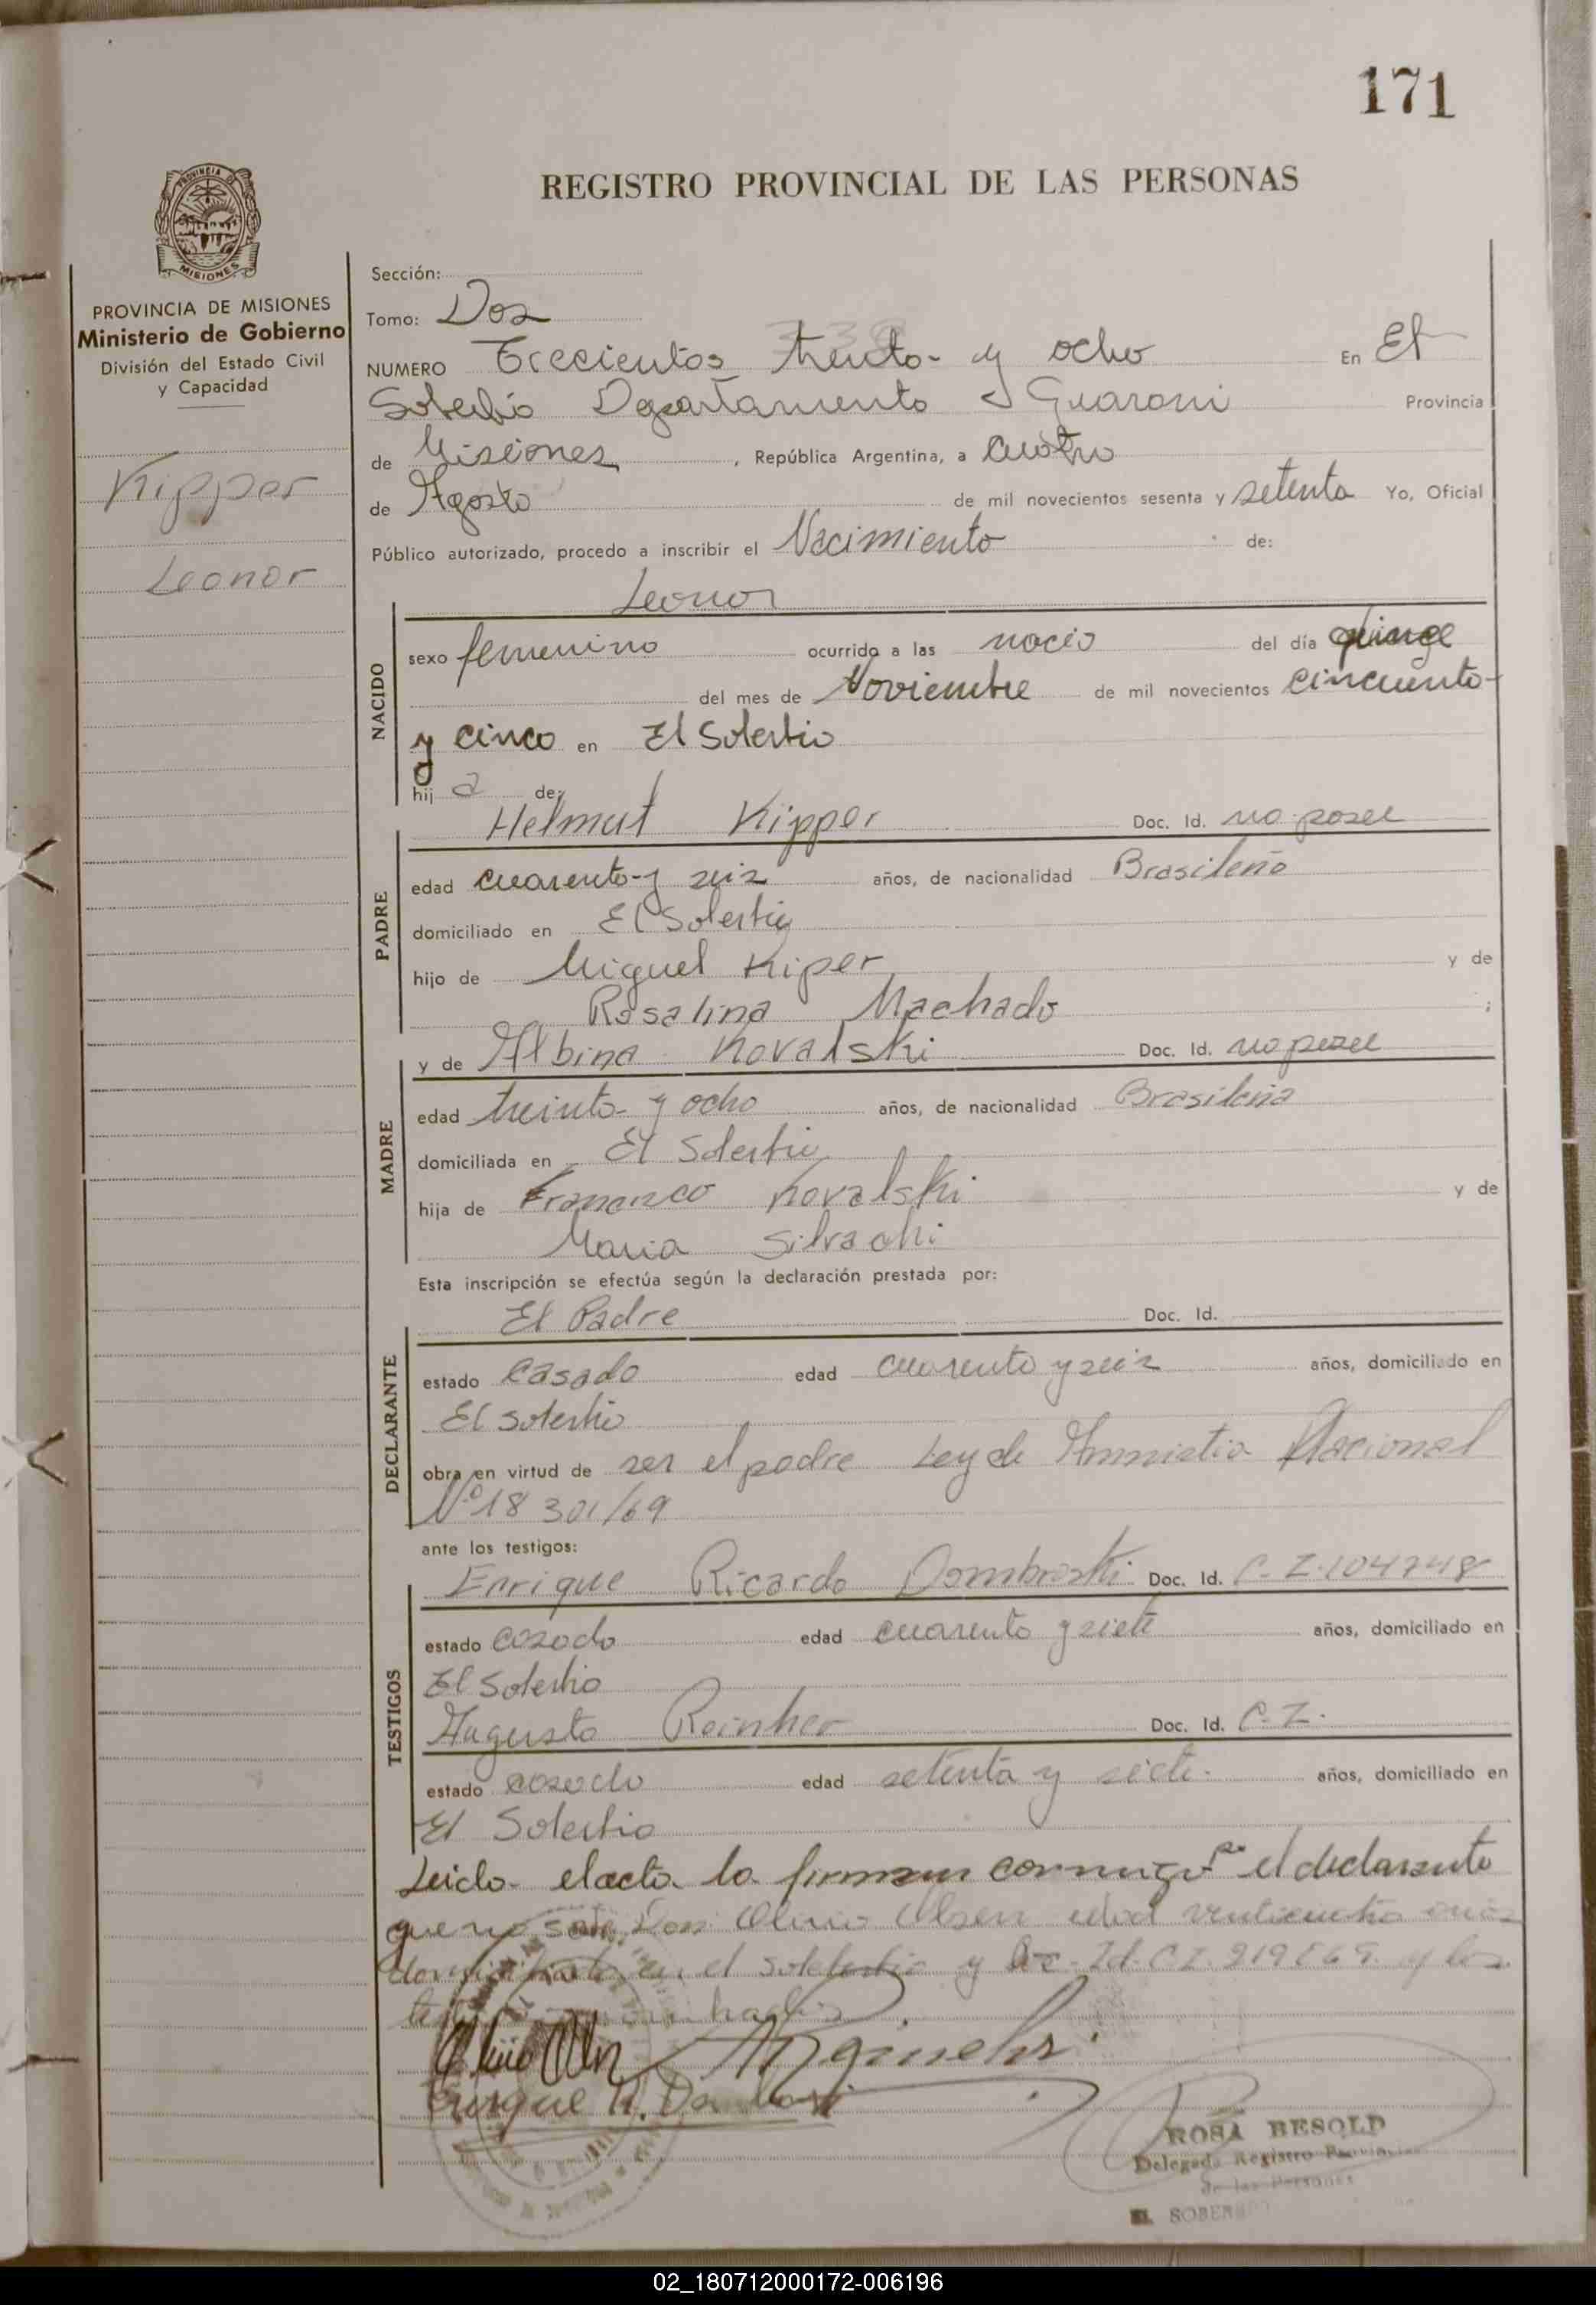 171
PROVINCIA DE
MISIONES
REGISTRO PROVINCIAL DE LAS PERSONAS
PROVINCIA DE MISIONES
Ministerio de Gobierno
División del Estado Civil
y Capacidad
Kipper
Leonor
Sección:
Tomo: Dos
338
NUMERO Trecientos treinta y ocho En El
Soberbio Departamento Guarani Provincia
de Misiones, República Argentina, a cuatro
de Agosto de mil novecientos sesenta y setenta Yo, Oficial
Público autorizado, procedo a inscribir el Nacimiento de:
Leonor
NACIDO
sexo femenino ocurrido a las nacio del día quince
del mes de Noviembre de mil novecientos cincuenta
y cinco en El Soberbio
hij a de:
Helmut Kipper Doc. Id. no posee
PADRE
edad cuarenta y seis años, de nacionalidad Brasileño
domiciliado en El Soberbio
hijo de Miguel Kiper y de
Rosalina Machado ;
y de Albina Kovalski Doc. Id. no posee
MADRE
edad treinta y ocho años, de nacionalidad Brasileña
domiciliada en El Soberbio
hija de Francisco Kovalski y de
Maria Silvachi
Esta inscripción se efectúa según la declaración prestada por:
El Padre Doc. Id.
DECLARANTE
estado casado edad cuarenta y seis años, domiciliado en
El Soberbio
obra en virtud de ser el padre Ley de Amnistia Nacional
Nº 18 301/69
ante los testigos:
Enrique Ricardo Dombroski Doc. Id. C. I. 104748
TESTIGOS
estado casado edad cuarenta y siete años, domiciliado en
El Soberbio
Augusto Reinher Doc. Id. C. I.
estado casado edad setenta y siete años, domiciliado en
El Soberbio
Leida el acta la firman conmigo por el declarante
que no sabe Don Olsen edad venticuatro años
domiciliado en el soberbio y Doc. Id. C I. 919869 y los
Enrique R.
ROSA BESOLD
Delegada Registro Provincial
de las Personas
EL SOBERBIO
02_180712000172-006196